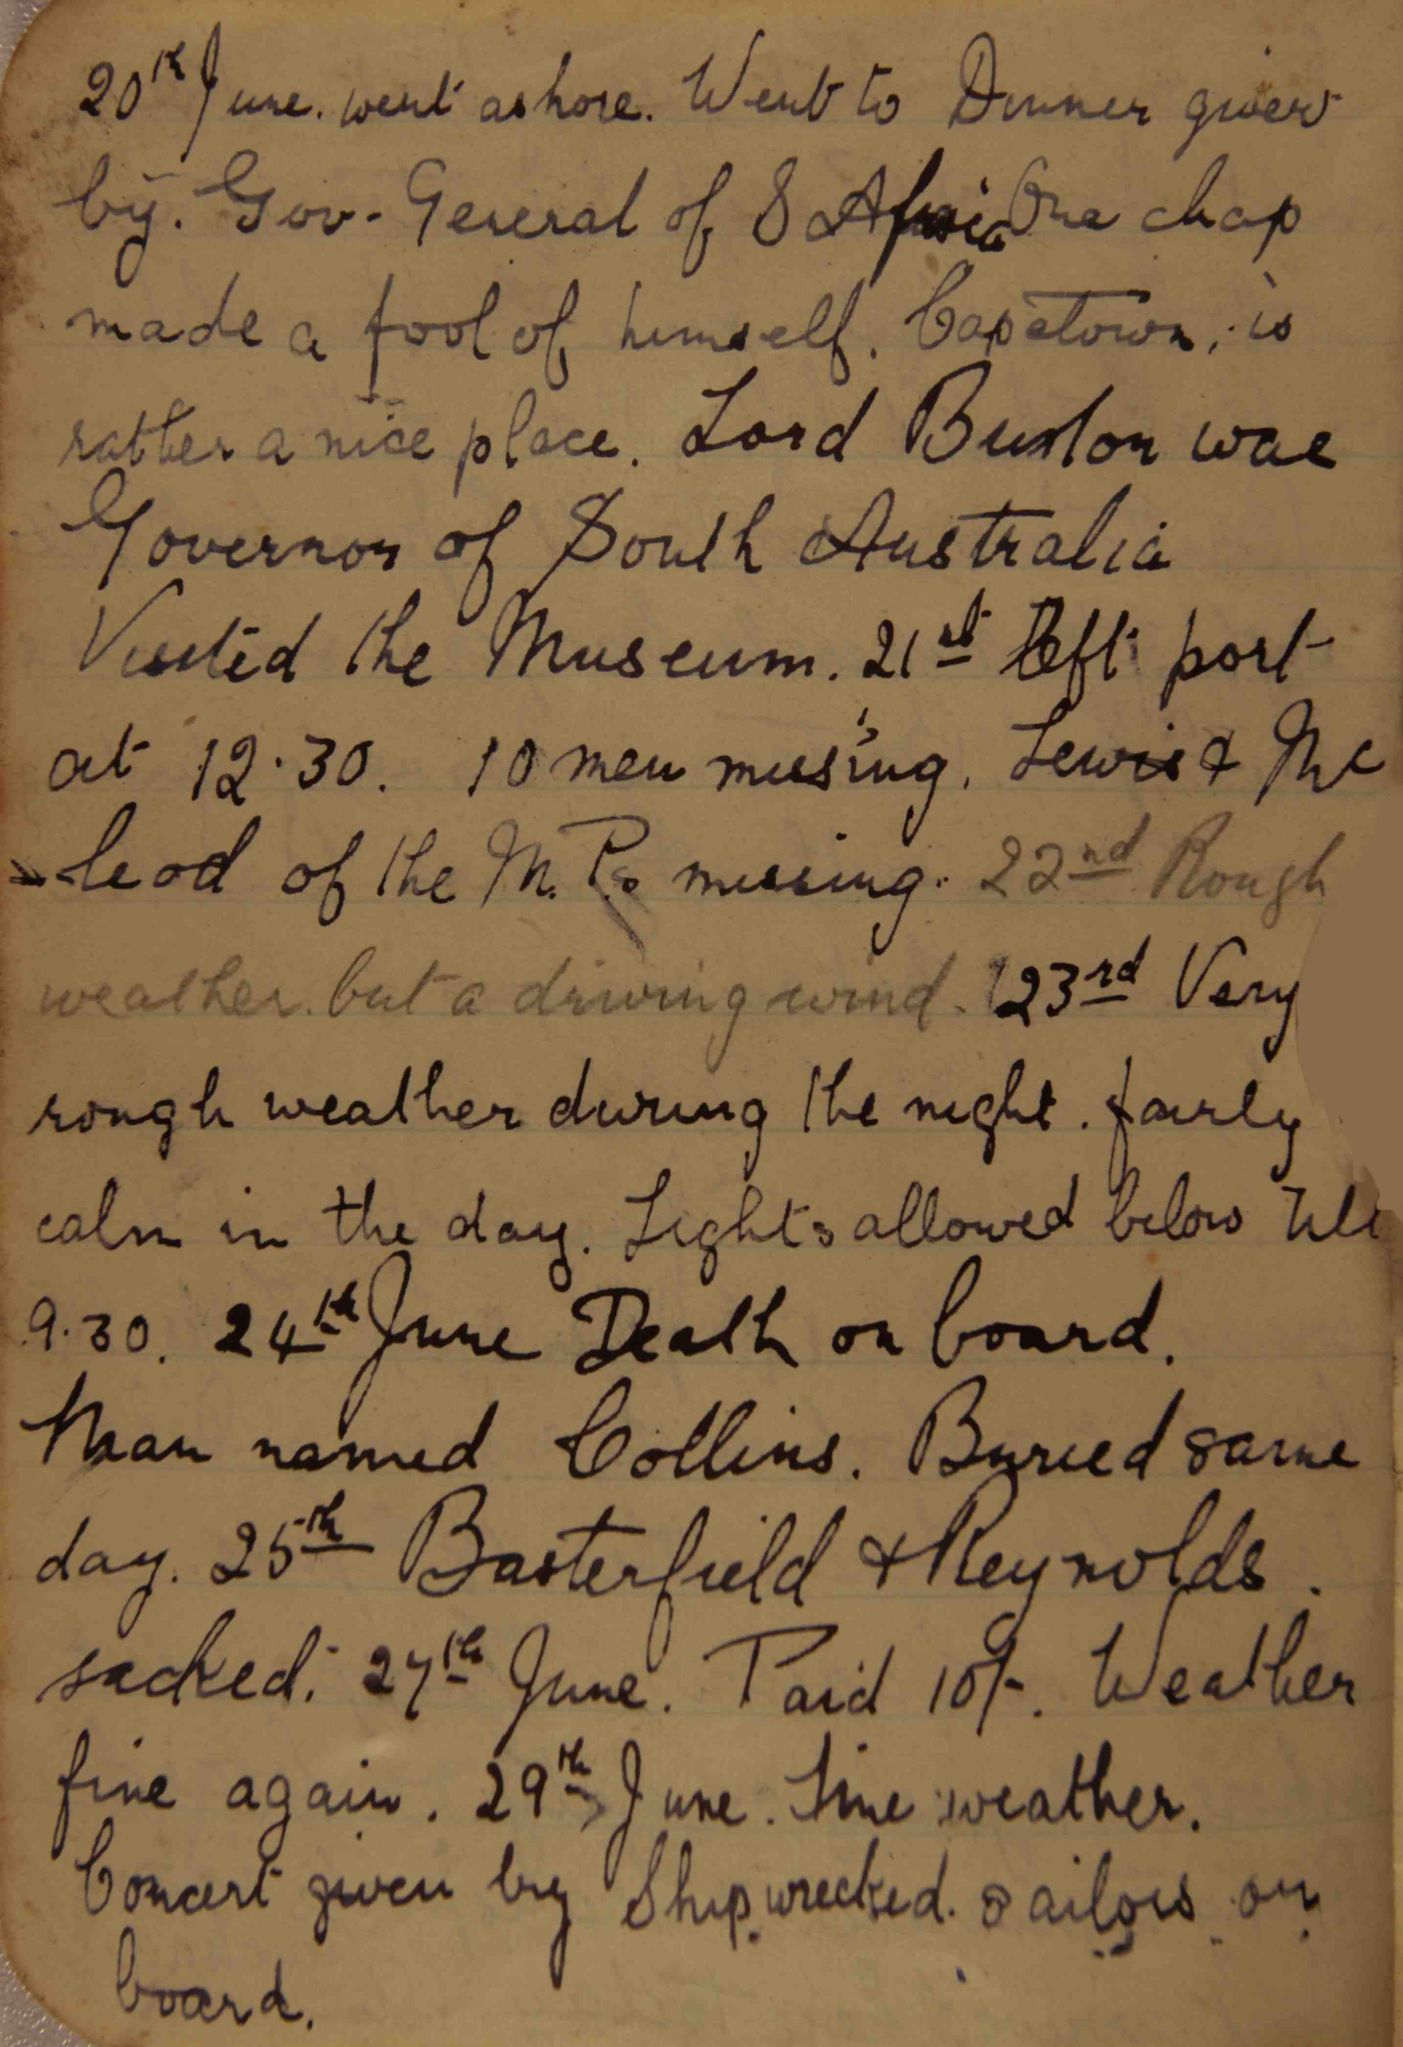 20th June. went ashore. Went to Dinner given
by. Gov-General of S Africa One chap
made a fool of himself. Capetown, is
rather a nice place. Lord Buxton was
Governor of South Australia
Visited the Museum. 21st left port
at 12.30. 10 men missing. Lewis & Mc
-leod of the M.Ps missing. 22nd Rough
weather. but a driving wind. 23rd Very
rough weather during the night. fairly
calm in the day. Lights allowed below till
9.30. 24th June Death on board.
Man named Collins. Buried same
day. 25th Basterfield & Reynolds.
sacked. 27th June. Paid 10/-. Weather
fine again. 29th June. Fine weather.
Concert given by Shipwrecked sailors on
board.